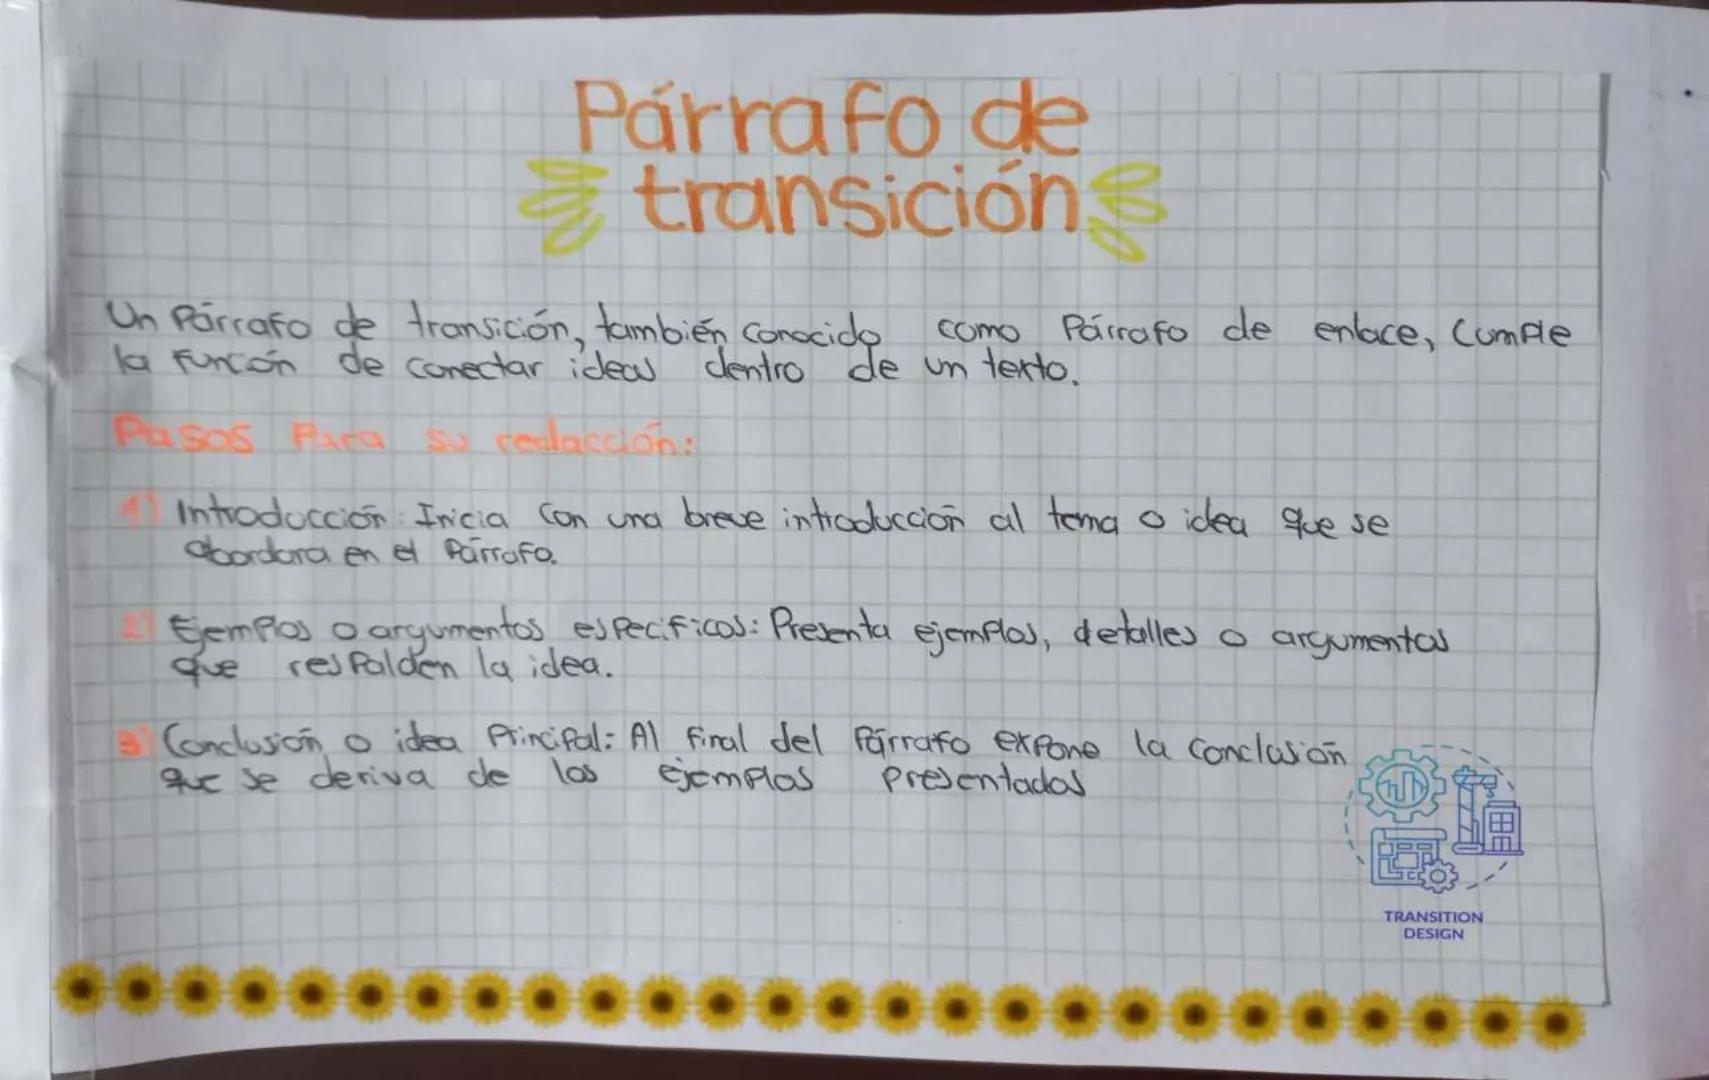 Párrafo de
transición
Un Párrafo de transición, también conocido como Párrafo de enlace, cumple
la función de conectar ideas dentro de un texto.
Pasos Para su redacción:
1) Introducción: Inicia con una breve introducción al tema o idea que se
abordara en el Párrafo.
2) Ejemplos o argumentos especificos: Presenta ejemplos, detalles o argumentos
que respalden la idea.
3) Conclusión o idea Principal: Al final del Párrafo expone la conclusión
que se deriva de los ejemplos presentados
TRANSITION
DESIGN